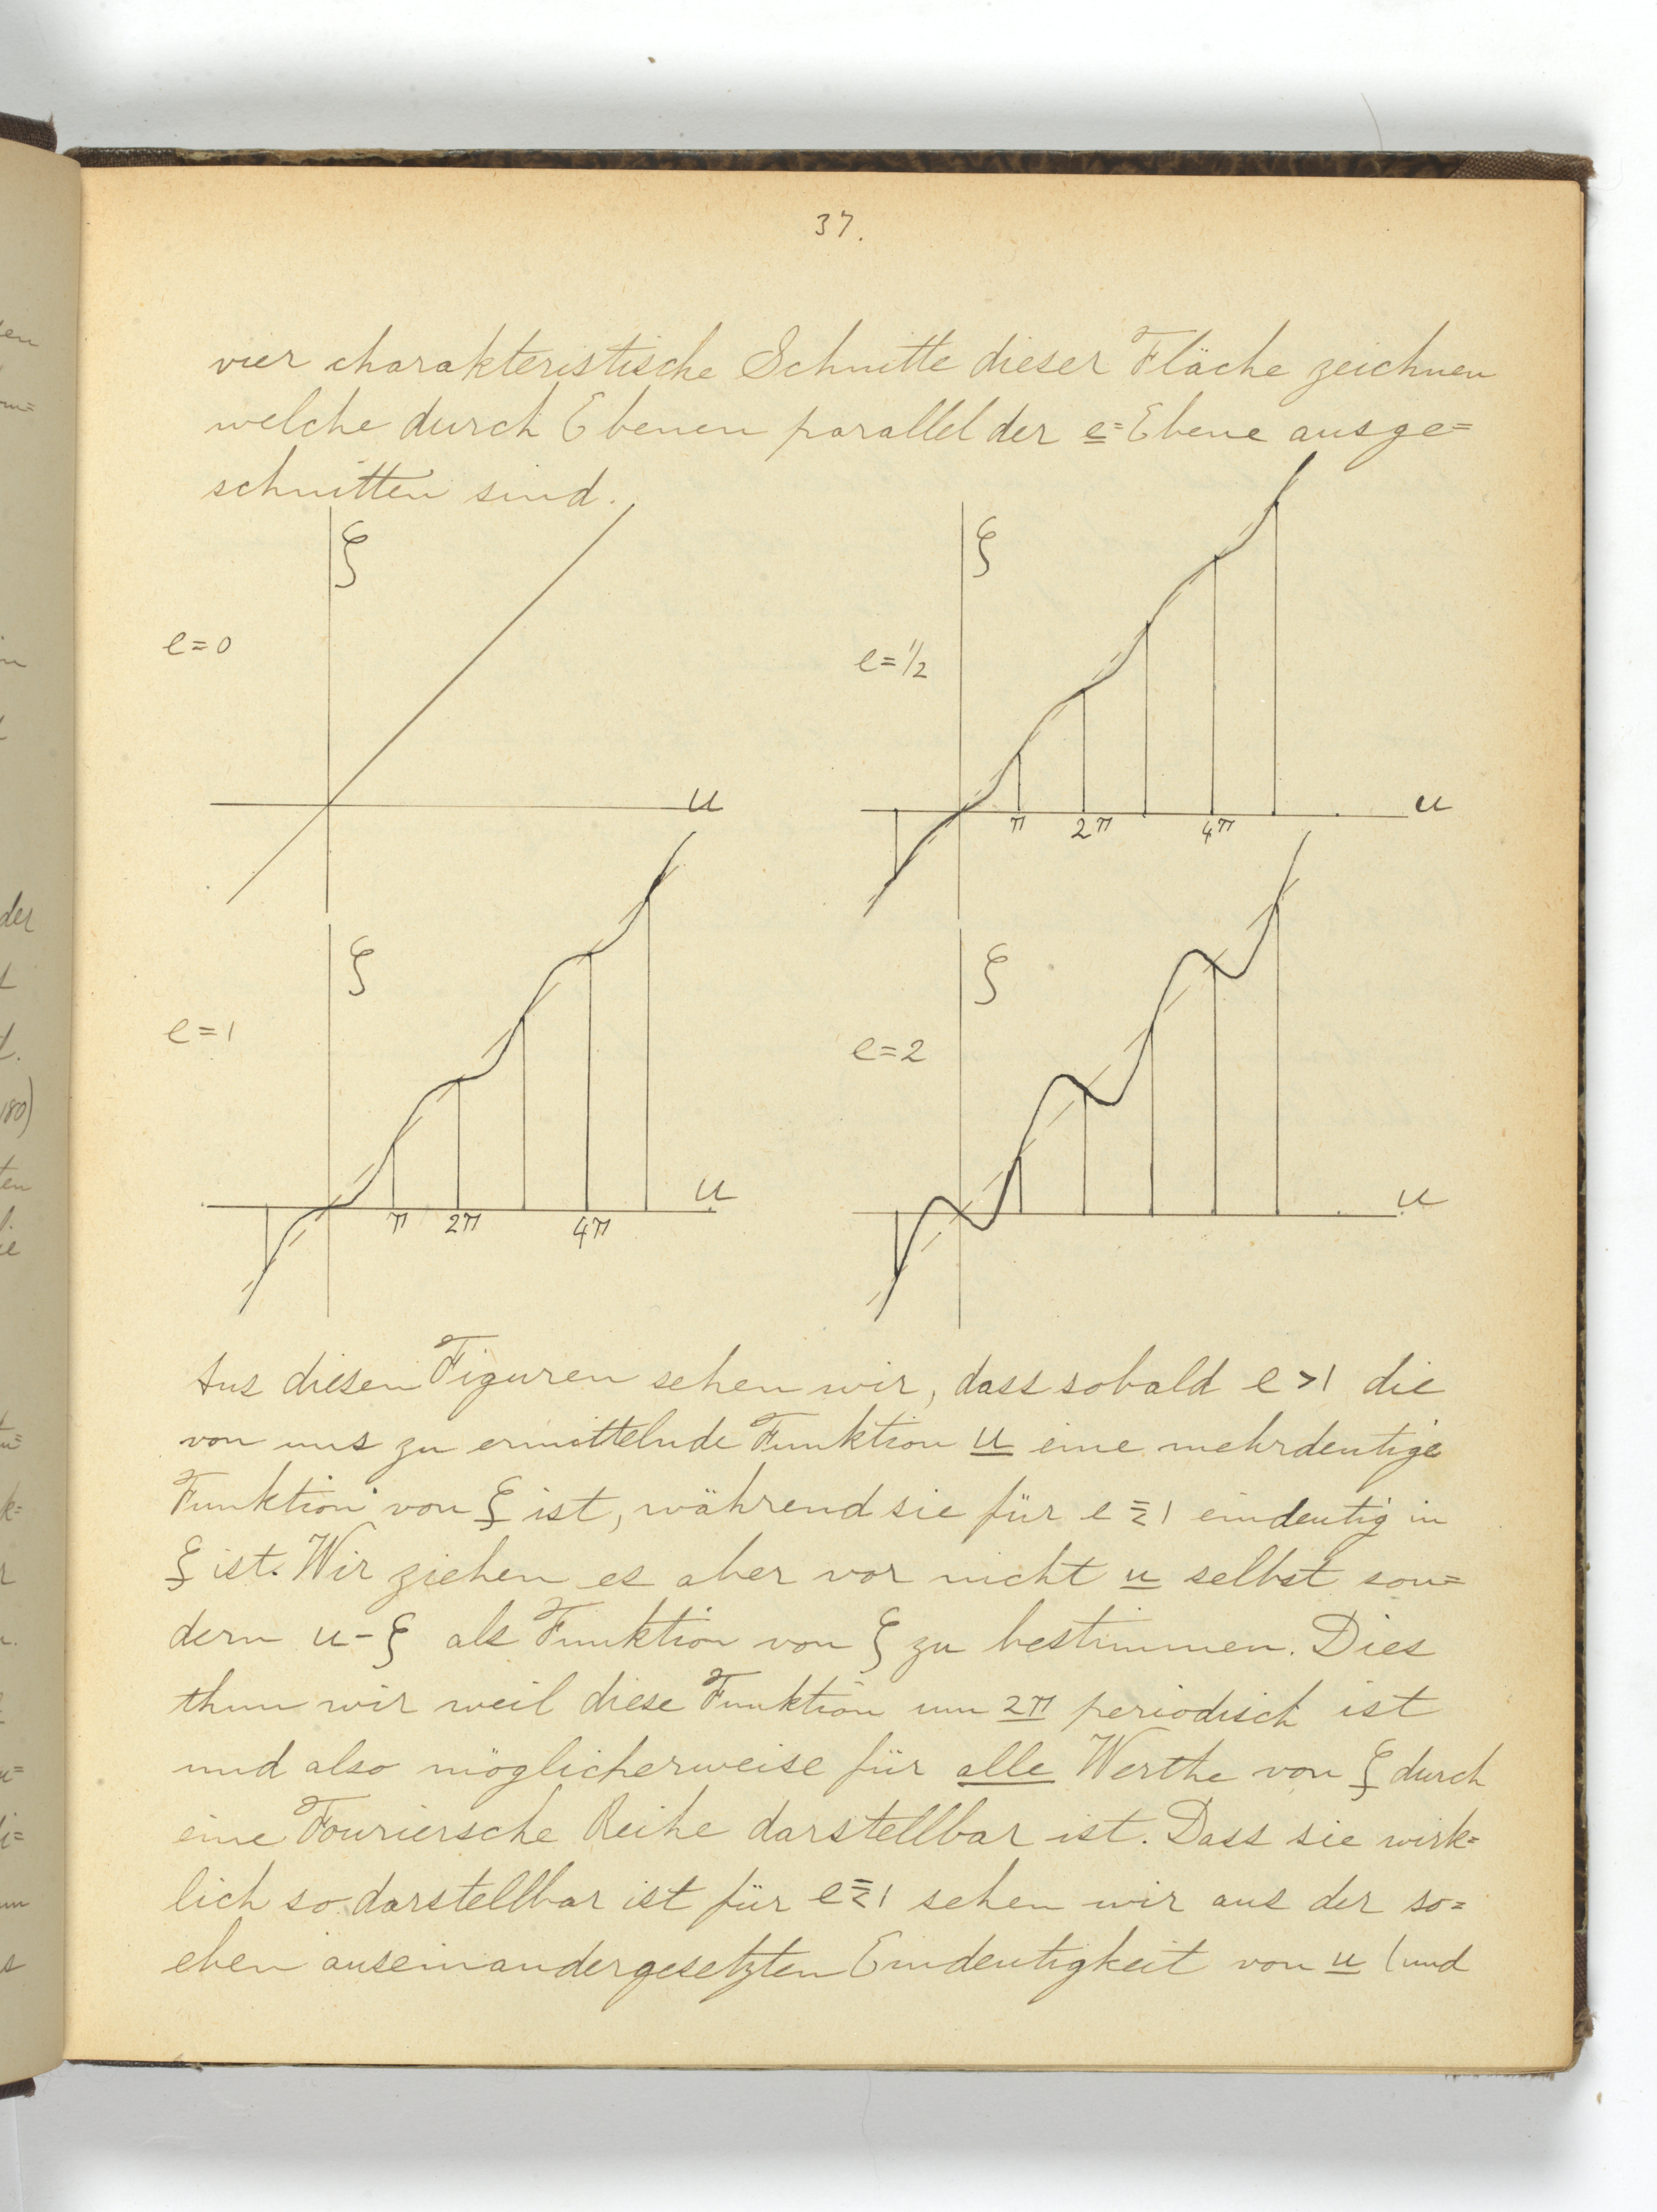 37.
vier charakteristische Schnitte dieser Fläche zeichnen
welche durch Ebenen parallel der e=Ebene ausge=
schnitten sind.
ζ
ζ
e=0
e=½
u
u
π 2π 4π
ζ
ζ
e=1
e=2
u
u
π 2π 4π
Aus diesen Figuren sehen wir, dass sobald e>1 die
von uns zu ermittelnde Funktion u eine mehrdeutige
Funktion von ζ ist, während sie für e ≦ 1 eindeutig in
ζ ist. Wir ziehen es aber vor nicht u selbst son=
dern u-ζ als Funktion von ζ zu bestimmen. Dies
thun wir weil diese Funktion um 2π periodisch ist
und also möglicherweise für alle Werthe von ζ durch
eine Fouriersche Reihe darstellbar ist. Dass sie wirk=
lich so darstellbar ist für e≦1 sehen wir aus der so=
eben auseinandergesetzten Eindeutigkeit von u (und